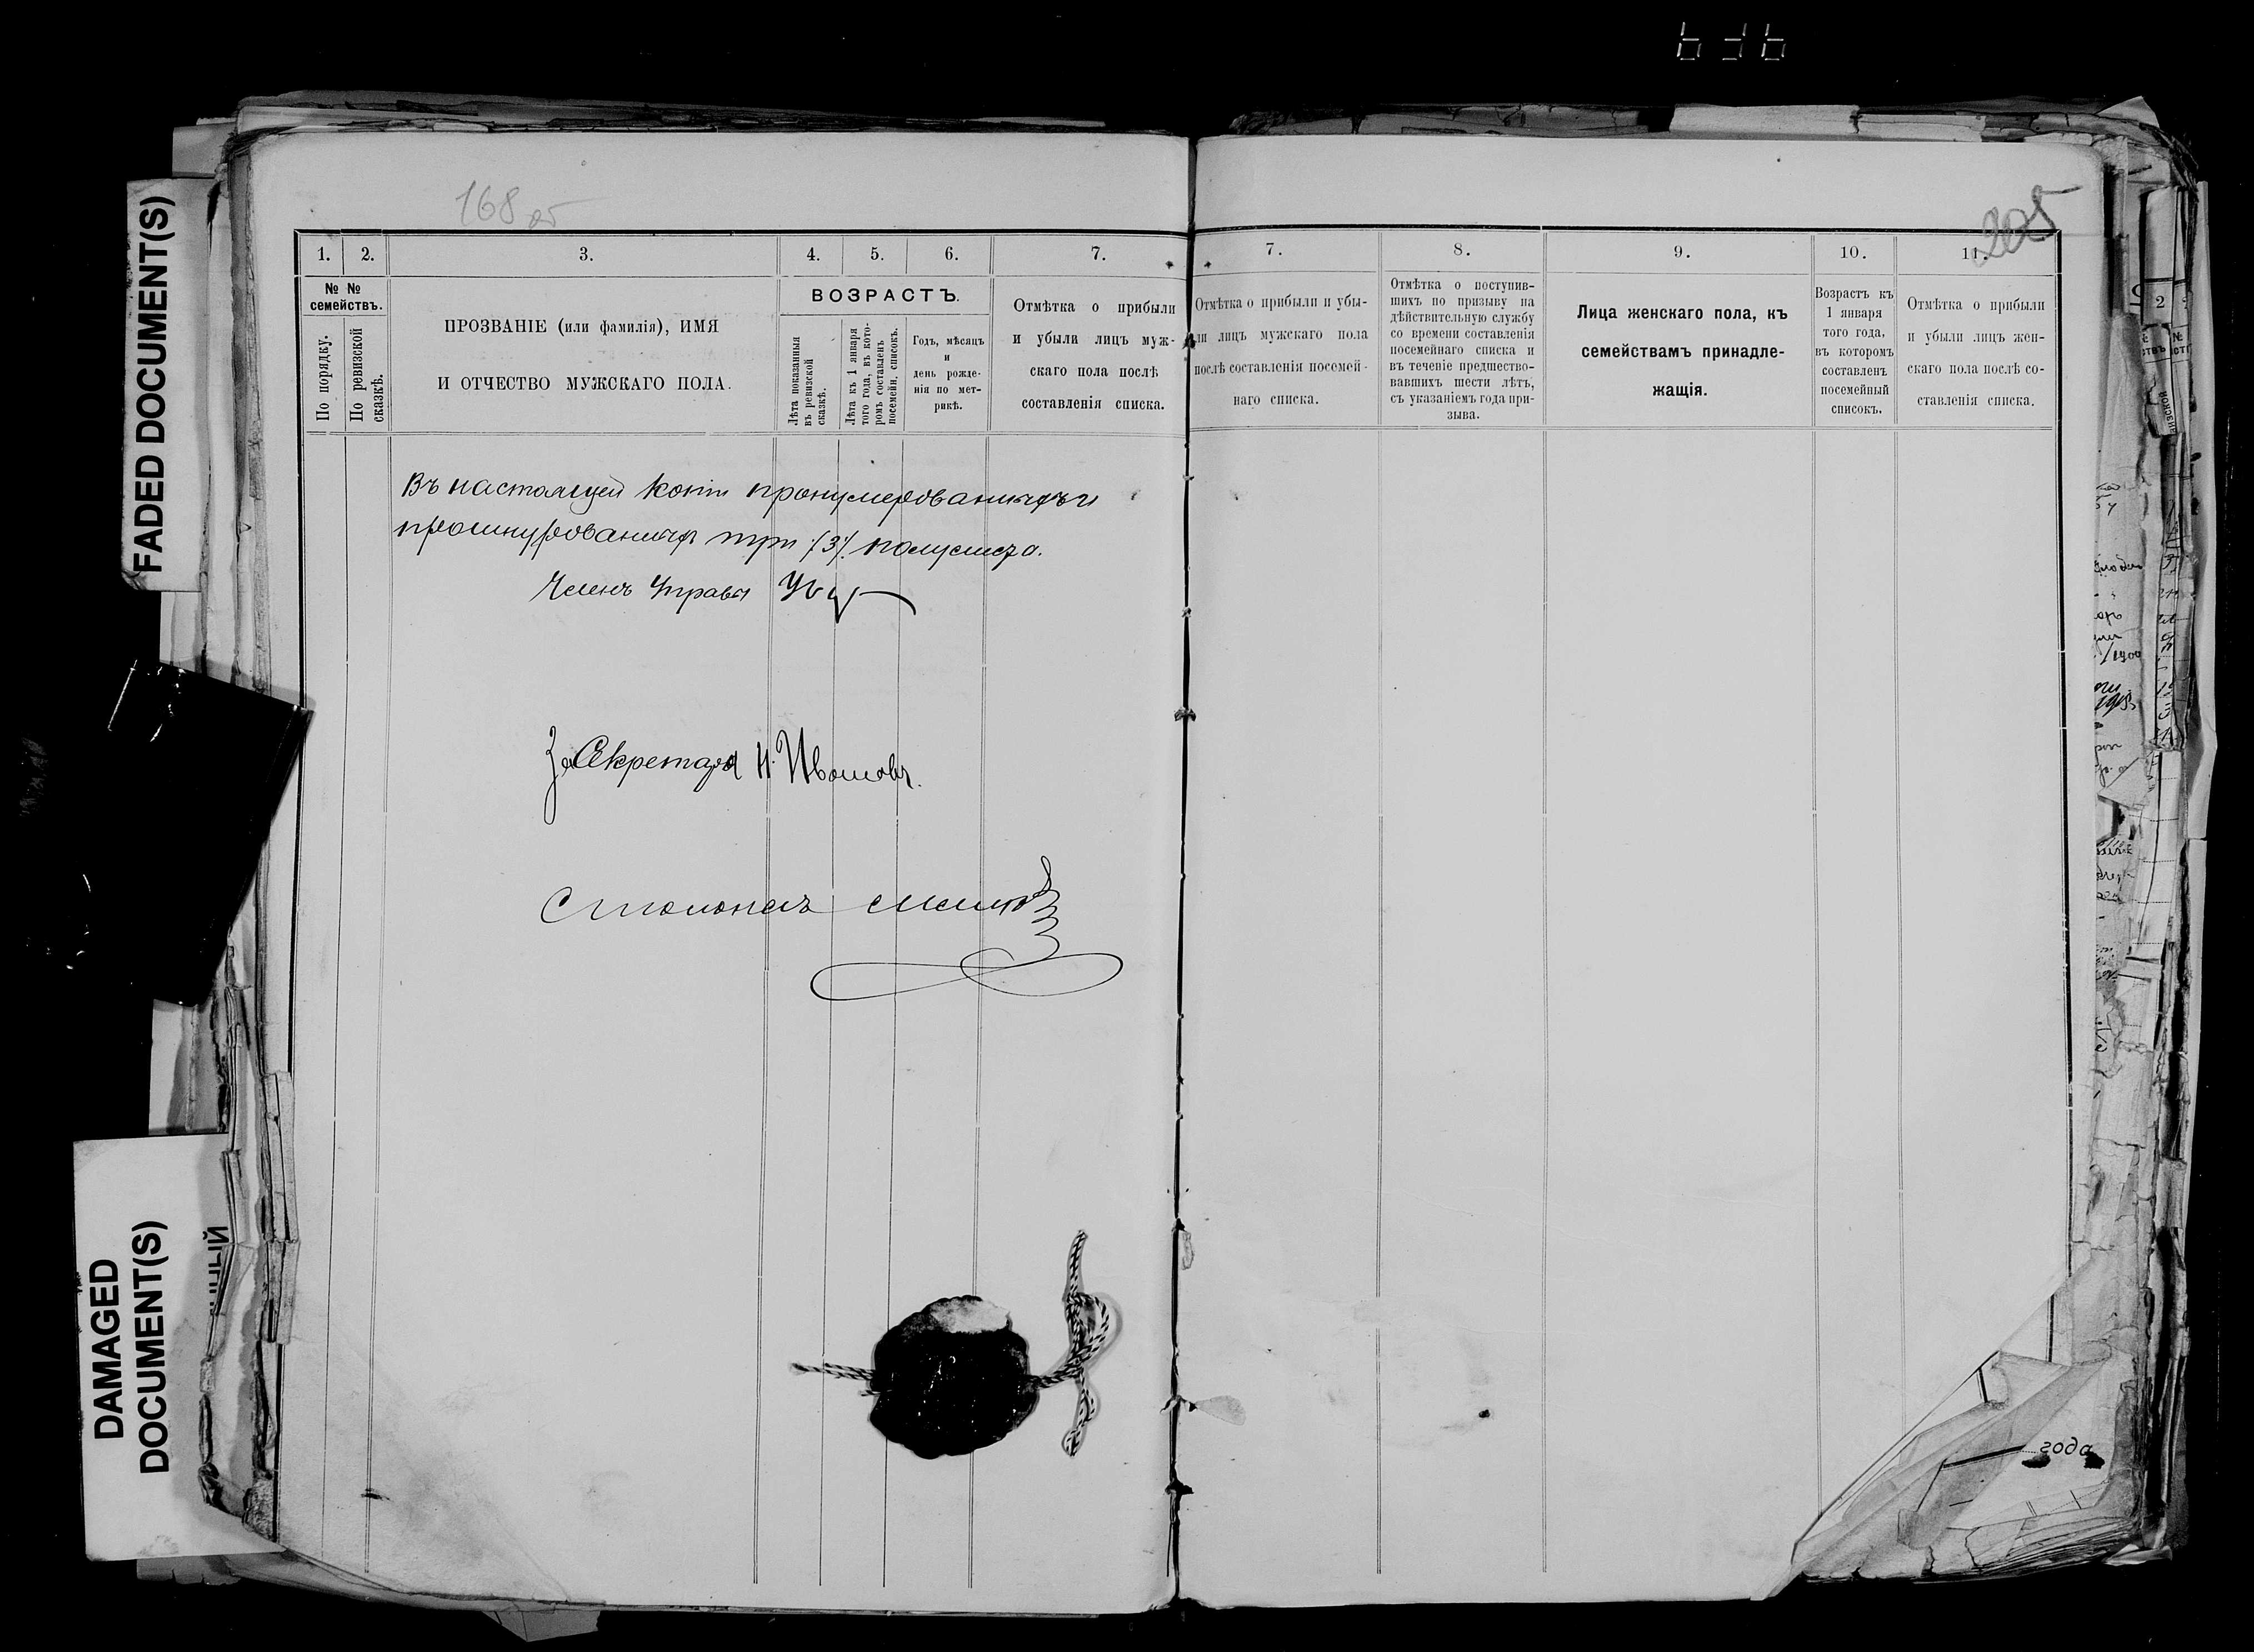 FADED DOCUMENT(S)
DAMAGED
DOCUMENT(S)
168 об
1. 2. 3. 4. 5. 6. 7.
№ №
семействъ.
По порядку.
По ревизской
сказкѣ.
ПРОЗВАНІЕ (или фамилія), ИМЯ
И ОТЧЕСТВО МУЖСКАГО ПОЛА.
ВОЗРАСТЪ.
Лѣта показанныя
въ ревизской
сказкѣ.
Лѣта къ 1 января
того года, въ кото-
ромъ составленъ
посемейн. списокъ.
Годъ, мѣсяцъ
и
день рожде-
нія по мет-
рикѣ.
Отмѣтка о прибыли
и убыли лицъ муж-
скаго пола послѣ
составленія списка.
Въ настоящей копіи пронумерованныхъ и
прошнурованныхъ три /3/ полулиста.
Членъ Управы
За Секретаря Н. Ивановъ.
205
7. 8. 9. 10. 11.
Отмѣтка о прибыли и убы-
ли лицъ мужскаго пола
послѣ составленія посемей-
наго списка.
Отмѣтка о поступив-
шихъ по призыву на
дѣйствительную службу
со времени составленія
посемейнаго списка и
въ теченіе предшество-
вавшихъ шести лѣтъ,
съ указаніемъ года при-
зыва.
Лица женскаго пола, къ
семействамъ принадле-
жащія.
Возрастъ къ
1 января
того года,
въ которомъ
составленъ
посемейный
списокъ.
Отмѣтка о прибыли
и убыли лицъ жен-
скаго пола послѣ со-
ставленія списка.
года